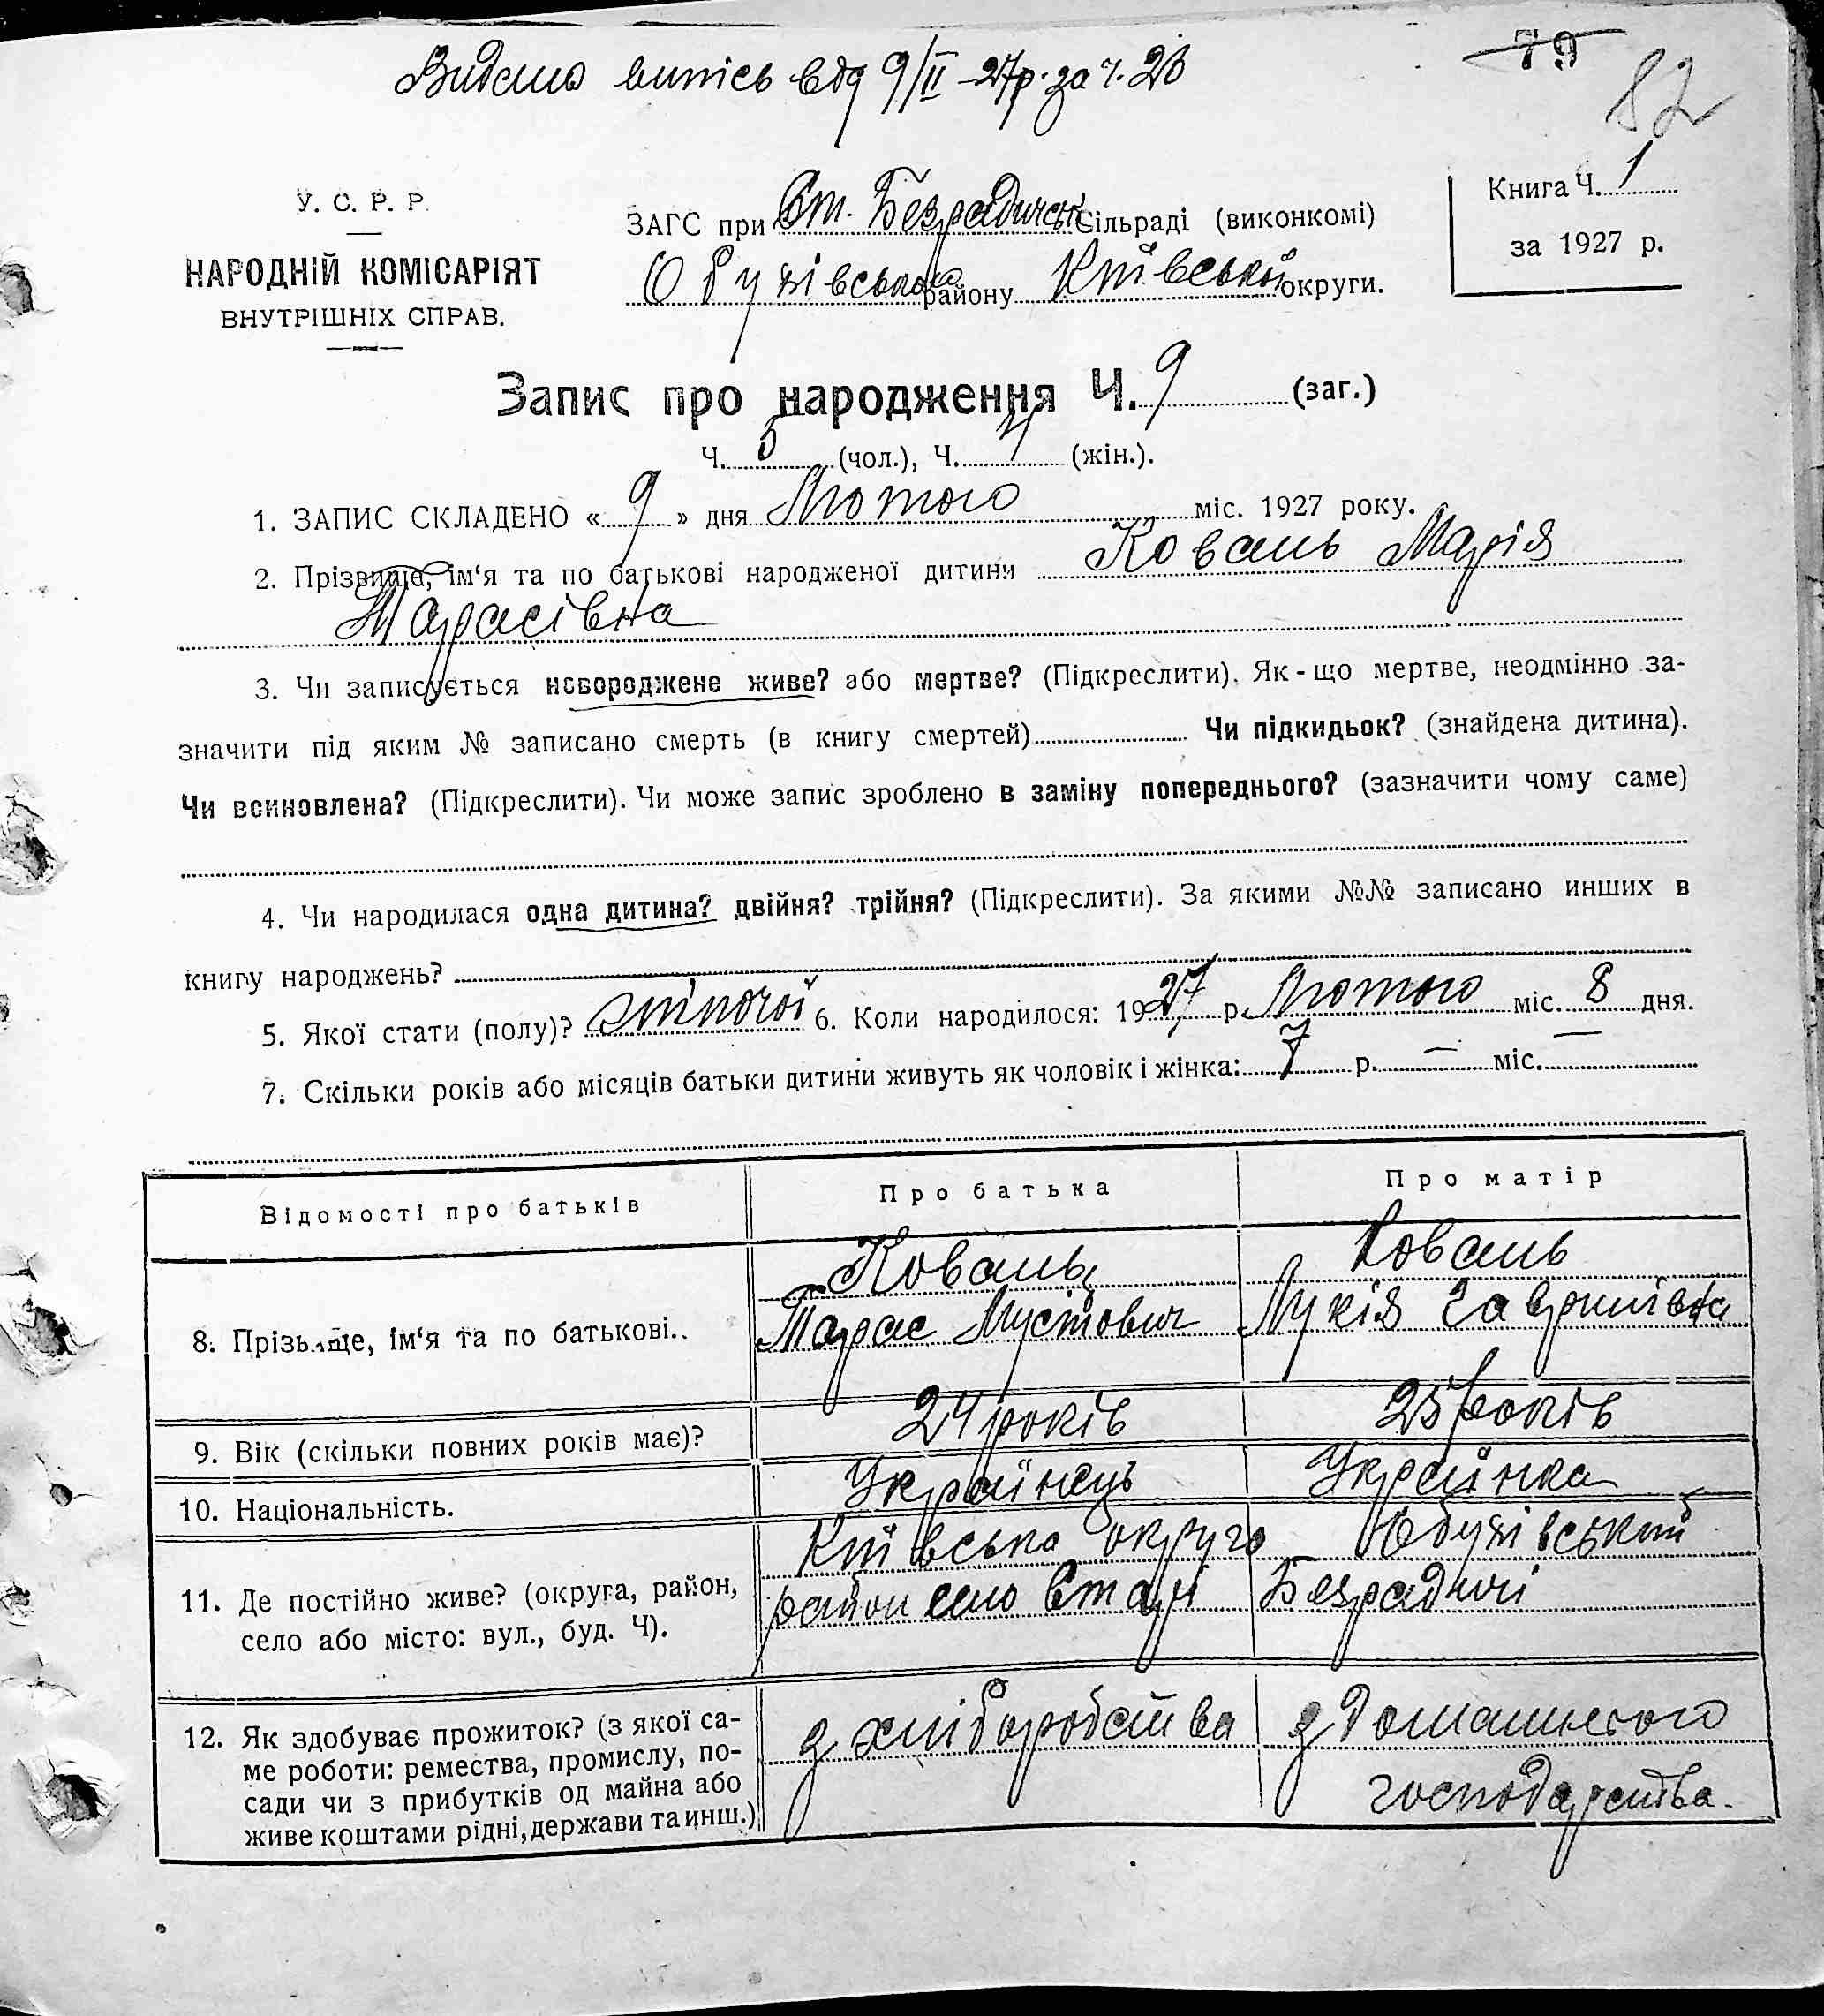 Видано випісь від 9/II-27р. за ч. 28
79
82
У. С. Р. Р.
НАРОДНІЙ КОМІСАРІЯТ
ВНУТРІШНІХ СПРАВ.
ЗАГС при Ст. Безрадичськ. Сільраді (виконкомі)
Обухівського району Київської округи.
Книга Ч. 1
за 1927 р.
Запис про народження Ч. 9 (заг.)
Ч. 5 (чол.), Ч. 4 (жін.).
1. ЗАПИС СКЛАДЕНО « 9 » дня Лютого міс. 1927 року.
2. Прізвище, ім‘я та по батькові народженої дитини Коваль Марія
Тарасівна
3. Чи записується новороджене живе? або мертве? (Підкреслити). Як-що мертве, неодмінно за-
значити під яким № записано смерть (в книгу смертей) Чи підкидьок? (знайдена дитина).
Чи всиновлена? (Підкреслити). Чи може запис зроблено в заміну попереднього? (зазначити чому саме)
4. Чи народилася одна дитина? двійня? трійня? (Підкреслити). За якими №№ записано инших в
книгу народжень?
5. Якої стати (полу)? жіночої 6. Коли народилося: 1927 р. Лютого міс. 8 дня.
7. Скільки років або місяців батьки дитини живуть як чоловік і жінка: 7 р. — міс. —
Відомості про батьків Про батька Про матір
8. Прізвище, ім‘я та по батькові.. Коваль Коваль
Тарас Мусійович Лукія Гаврилівна
9. Вік (скільки повних років має)? 24 років 25 років
10. Національність. Українець Українка
11. Де постійно живе? (округа, район, Київська округа Обухівський
село або місто: вул., буд. Ч). район село Старі Безрадичі
12. Як здобуває прожиток? (з якої са- з хліборобства з домашнього
ме роботи: ремества, промислу, по- господарства.
сади чи з прибутків од майна або
живе коштами рідні, держави та инш.)